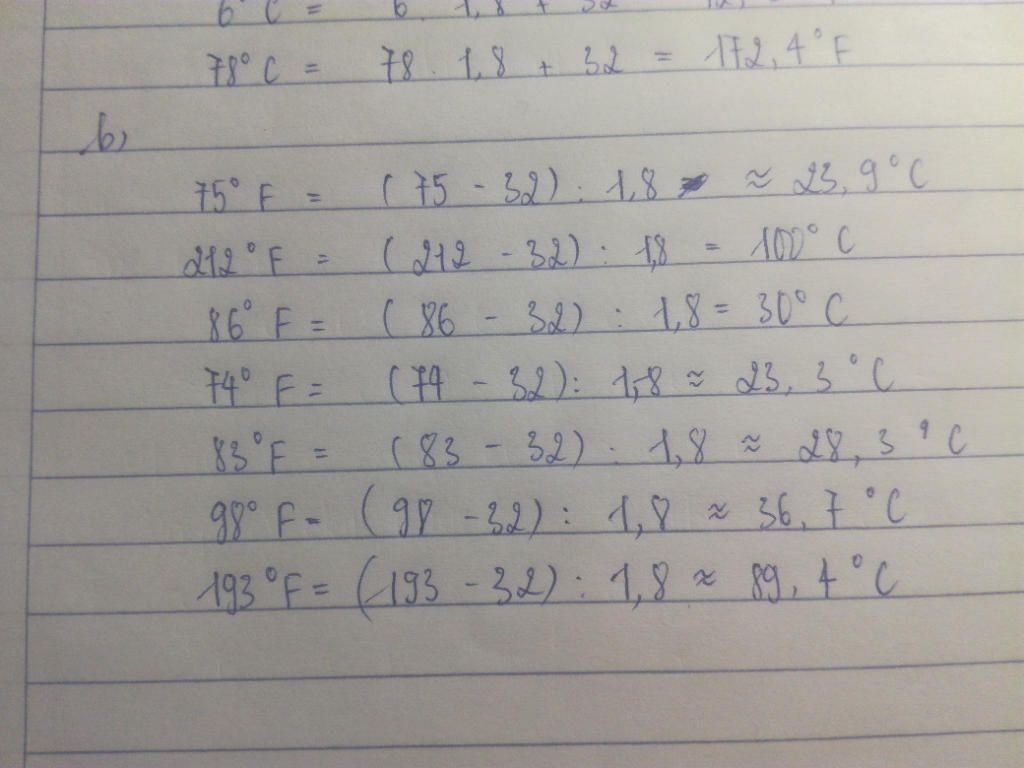 6° C = 6 . 1,8 + 32
78° C = 78 . 1,8 + 32 = 172,4° F
b,
75° F = (75 - 32) : 1,8 ≈ 23,9° C
212° F = (212 - 32) : 1,8 = 100° C
86° F = (86 - 32) : 1,8 = 30° C
74° F = (74 - 32) : 1,8 ≈ 23,3° C
83° F = (83 - 32) : 1,8 ≈ 28,3° C
98° F = (98 - 32) : 1,8 ≈ 36,7° C
193° F = (193 - 32) : 1,8 ≈ 89,4° C